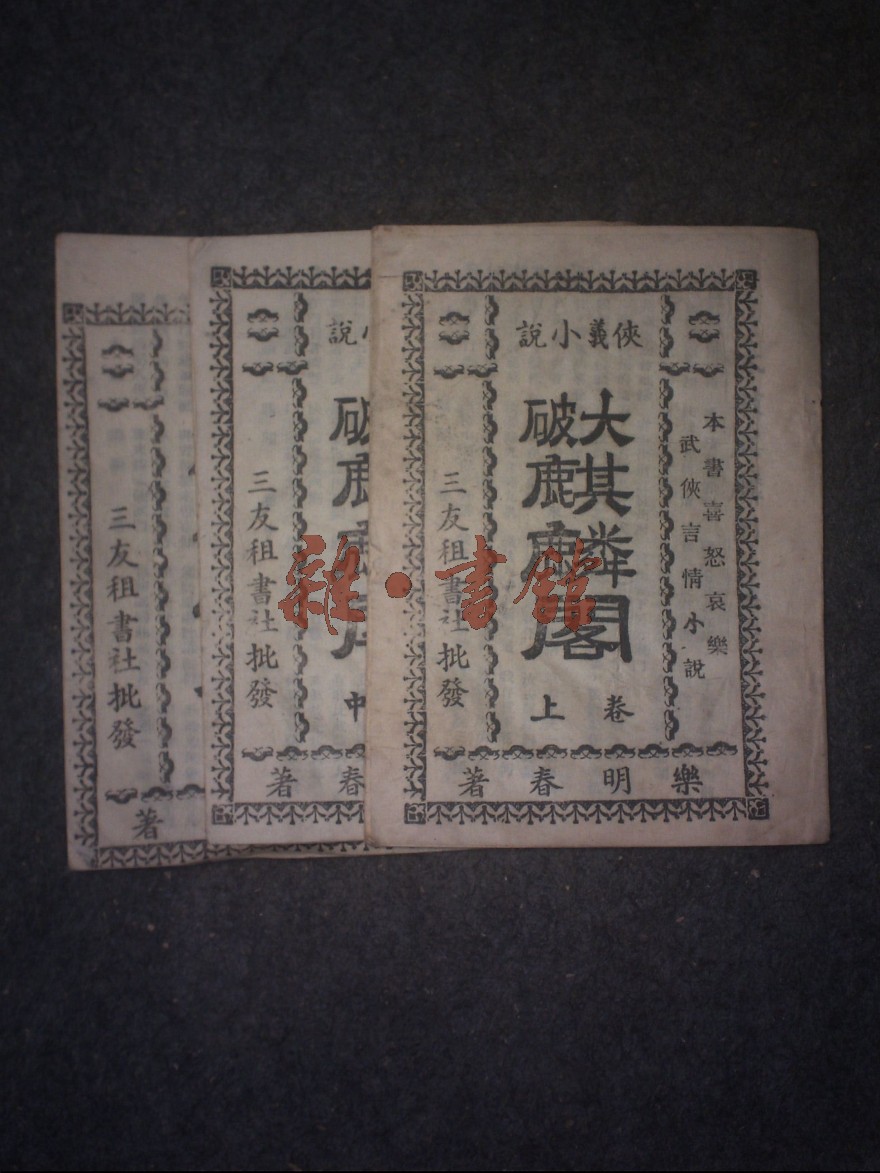 俠義小說
本書喜怒哀樂
武俠言情小說
大破麒麟閣
卷上
三友租書社批發
樂明春著
小說
破
中
三友租書社批發
春著
三友租書社批發
著
雜·書館